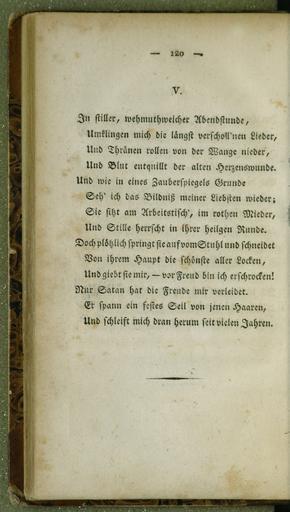 — 120 —
V.
In stiller, wehmuthweicher Abendstunde,
Umklingen mich die längst verscholl'nen Lieder,
Und Thränen rollen von der Wange nieder,
Und Blut entquillt der alten Herzenswunde.
Und wie in eines Zauberspiegels Grunde
Seh' ich das Bildniß meiner Liebsten wieder;
Sie sitzt am Arbeitstisch', im rothen Mieder,
Und Stille herrscht in ihrer heilgen Runde.
Doch plötzlich springt sie auf vom Stuhl und schneidet
Von ihrem Haupt die schönste aller Locken,
Und giebt sie mir, — vor Freud bin ich erschrocken!
Nur Satan hat die Freude mir verleidet.
Er spann ein festes Seil von jenen Haaren,
Und schleift mich dran herum seit vielen Jahren.